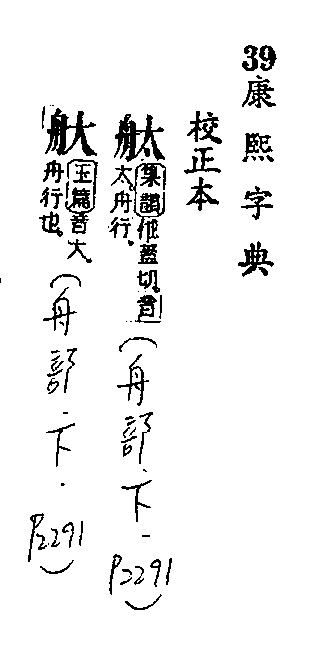 39康熙字典
校正本
舦集韻他蓋切音
太舟行
舦玉篇音大
舟行也
(舟部·下-
P2291)
(舟部·下·
P2291)